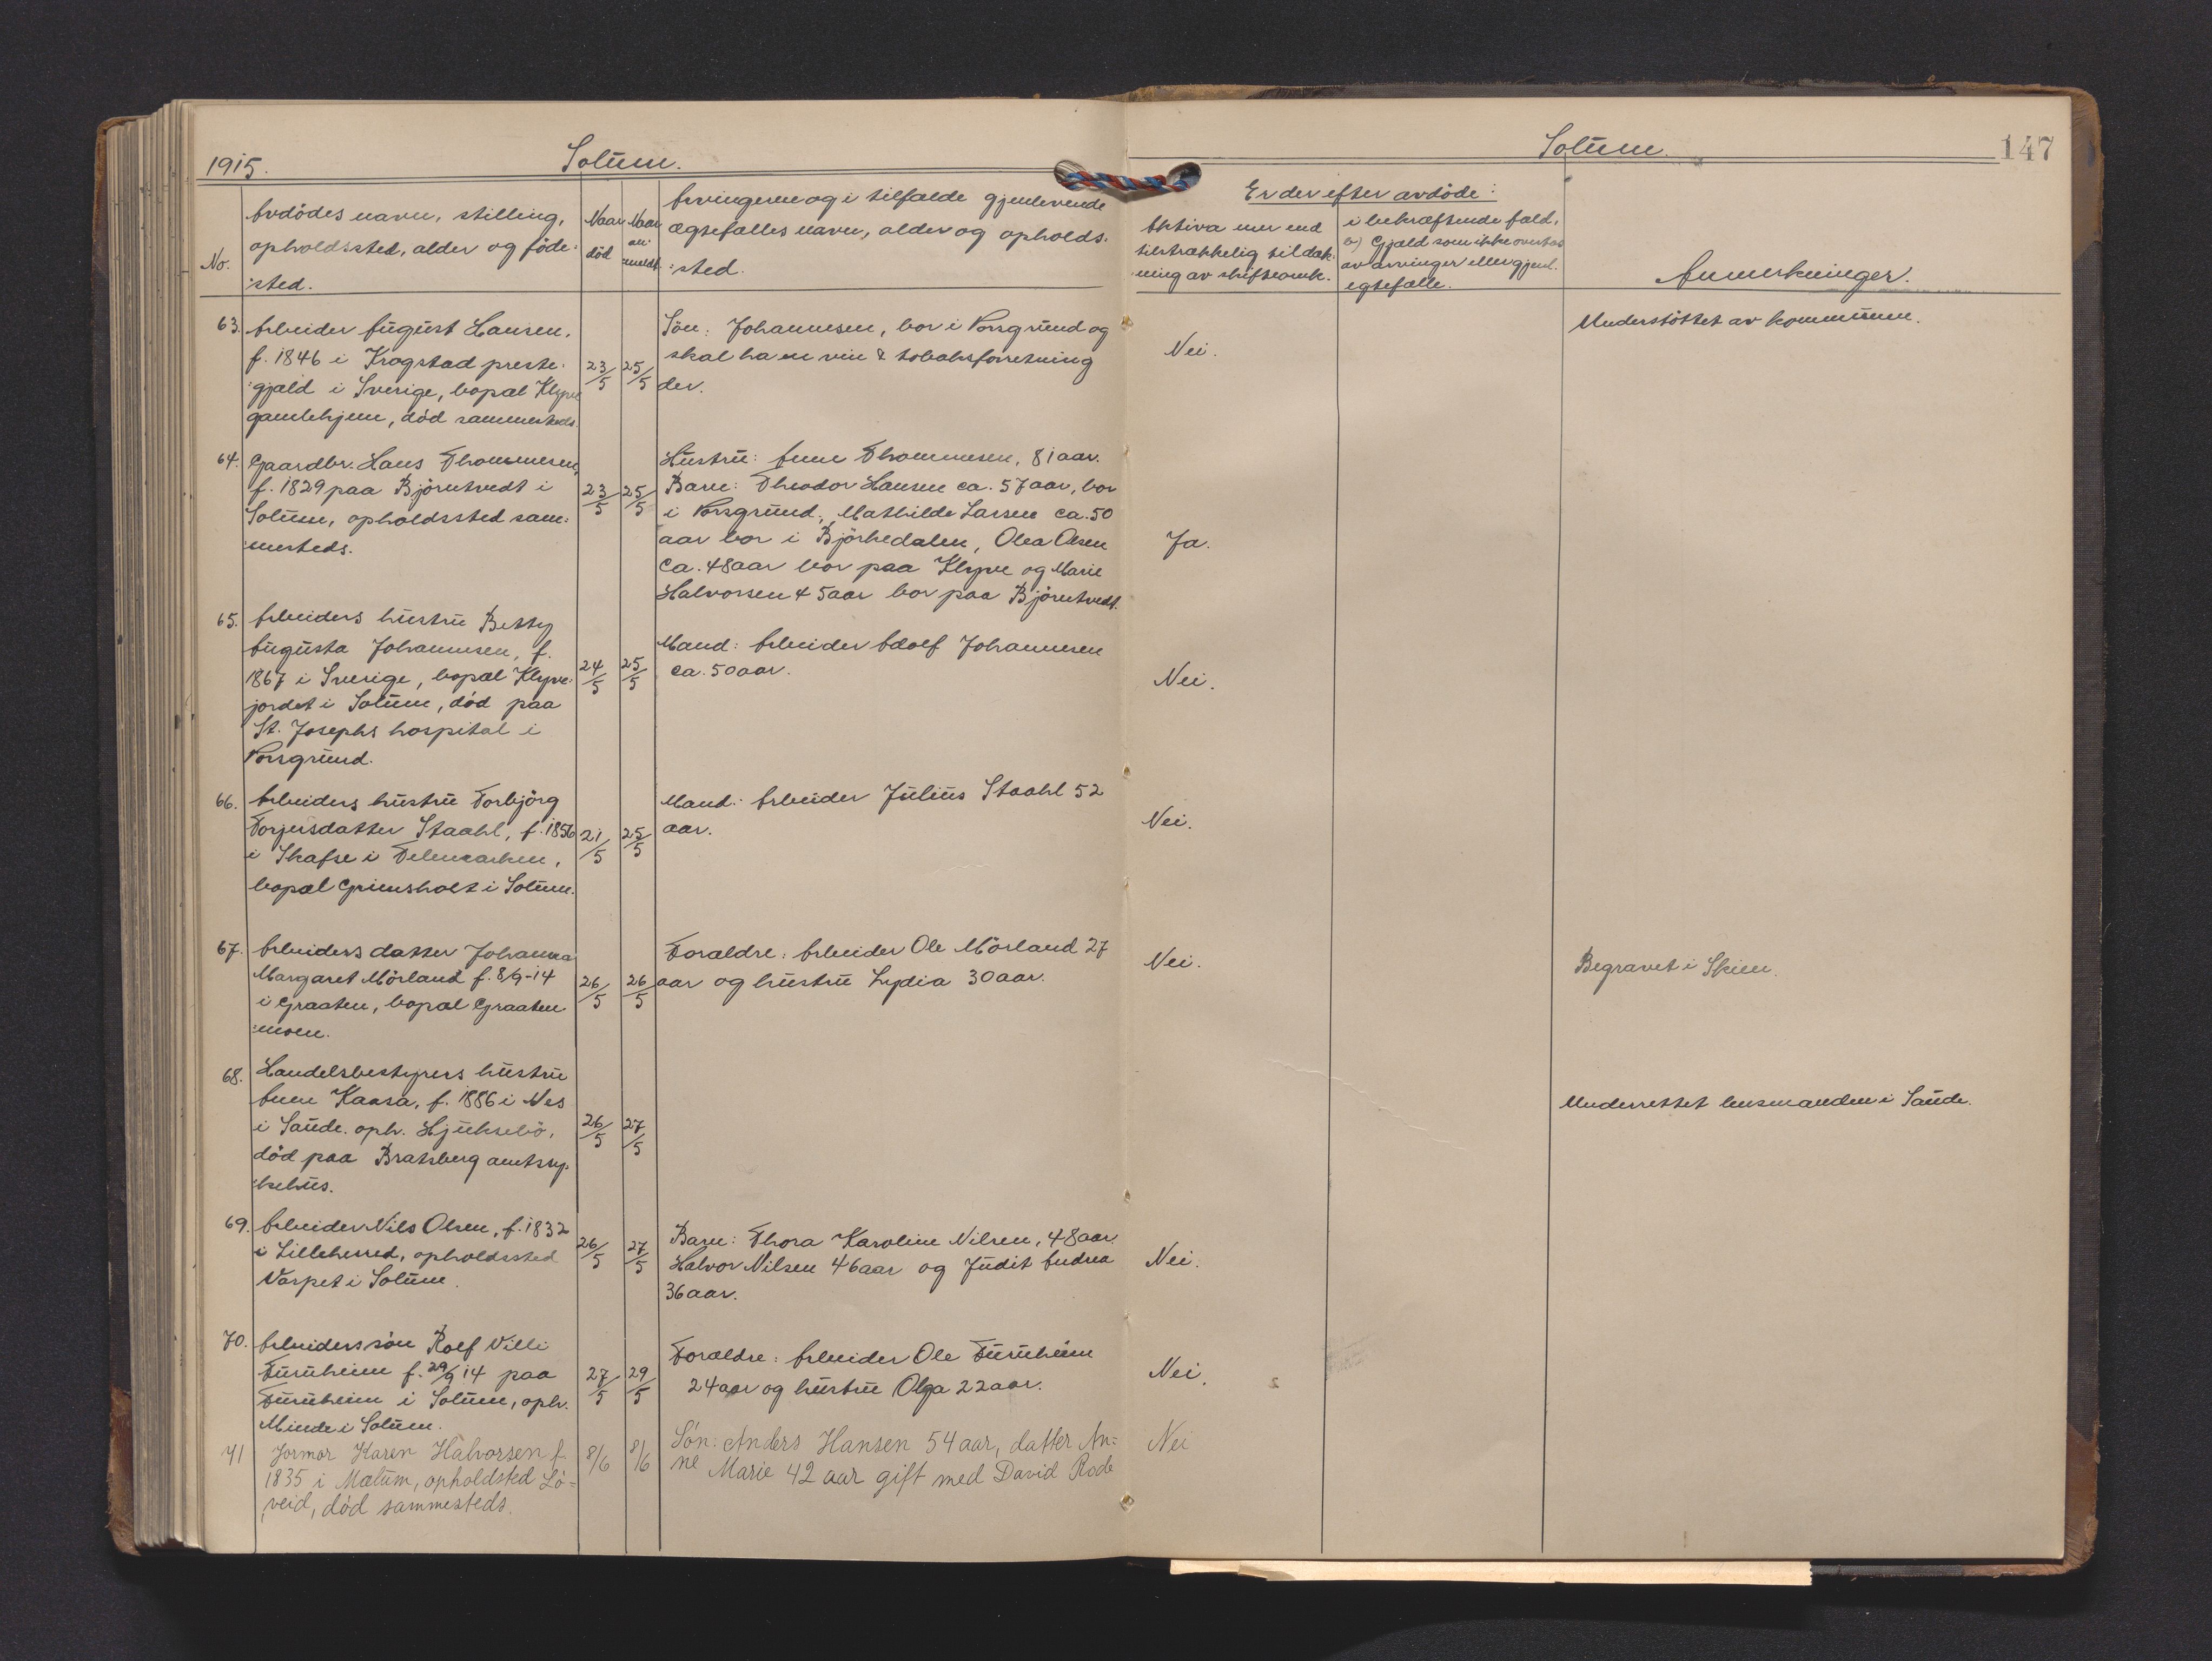 1915.
Solum.
No.
Avdödes navn, stilling,
opholdssted, alder og föde:
:sted.
Naar
död
Naar
an:
meldt.
Arvingerne og i tilfælde gjenlevende
ægtefælles navn, alder og opholds:
:sted.
63.
Arbeider August Hansen,
f. 1846 i Krogstad preste:
:gjæld i Sverige, bopæl Klyve
gamlehjem, död sammesteds.
23/5
25/5
Sön: Johannesen, bor i Porsgrund og
skal ha en vin & tobaksforretning
der.
64.
Gaardbr. Hans Thommesen,
f. 1829 paa Björntvedt i
Solum, opholdssted sam:
:mesteds.
23/5
25/5
Hustru: Anne Thommesen, 81 aar.
Barn: Theodor Hansen ca. 57 aar, bor
i Porsgrund, Mathilde Larsen ca. 50
aar bor i Björkedalen, Olea Olsen
ca. 48 aar bor paa Klyve og Marie
Halvorsen 45 aar bor paa Björntvedt.
65.
Arbeiders hustru Betty
Augusta Johannesen, f.
1867 i Sverige, bopæl Klyve:
jordet i Solum, död paa
St. Josephs hospital i
Porsgrund.
24/5
25/5
Mand: Arbeider Adolf Johannesen
ca. 50 aar.
66.
Arbeiders hustru Torbjörg
Torjusdatter Staahl, f. 1856
i Skafse i Telemarken,
bopæl Grimsholt i Solum.
21/5
25/5
Mand: Arbeider Julius Staahl 52
aar.
67.
Arbeiders datter Johanna
Margaret Mörland f. 8/9-14
i Graaten, bopæl Graaten
:moen.
26/5
26/5
Forældre: Arbeider Ole Mörland 27
aar og hustru Lydia 30 aar.
68.
Handelsbestyrers hustru
Anne Kaasa, f. 1886 i Nes
i Saude. oph. Hjuksebö,
död paa Bratsberg amtssy:
:kehus.
26/5
27/5
69.
Arbeider Nils Olsen, f. 1832
i Lilleherred, opholdssted
Varpet i Solum.
26/5
27/5
Barn: Thora Karoline Nilsen, 48 aar.
Halvor Nilsen 46 aar og Judit Andrea
36 aar.
70.
Arbeiders sön Rolf Villi
Furuheim f. 29/9 14 paa
Furuheim i Solum, oph.
Minde i Solum.
27/5
29/5
Forældre: Arbeider Ole Furuheim
24 aar og hustru Olga 22 aar.
71
Jormor Karen Halvorsen f.
1835 i Mælum, opholdsted Lö=
veid, död sammesteds.
8/6
8/6
Sön: Anders Hansen 54 aar, datter An:
ne Marie 42 aar gift med David Rode
Solum.
147
Er der efter avdöde:
Aktiva mer end
tilstrækkelig til dæk:
:ning av skifteomk.
i bekræftende fald,
b) Gjæld som ikke overtas
av arvinger eller gjenl.
egtefælle.
Anmerkninger.
Nei.
Understöttet av kommunen.
Ja.
Nei.
Nei.
Nei.
Begravet i Skien.
Underrettet lensmanden i Saude.
Nei.
Nei.
Nei